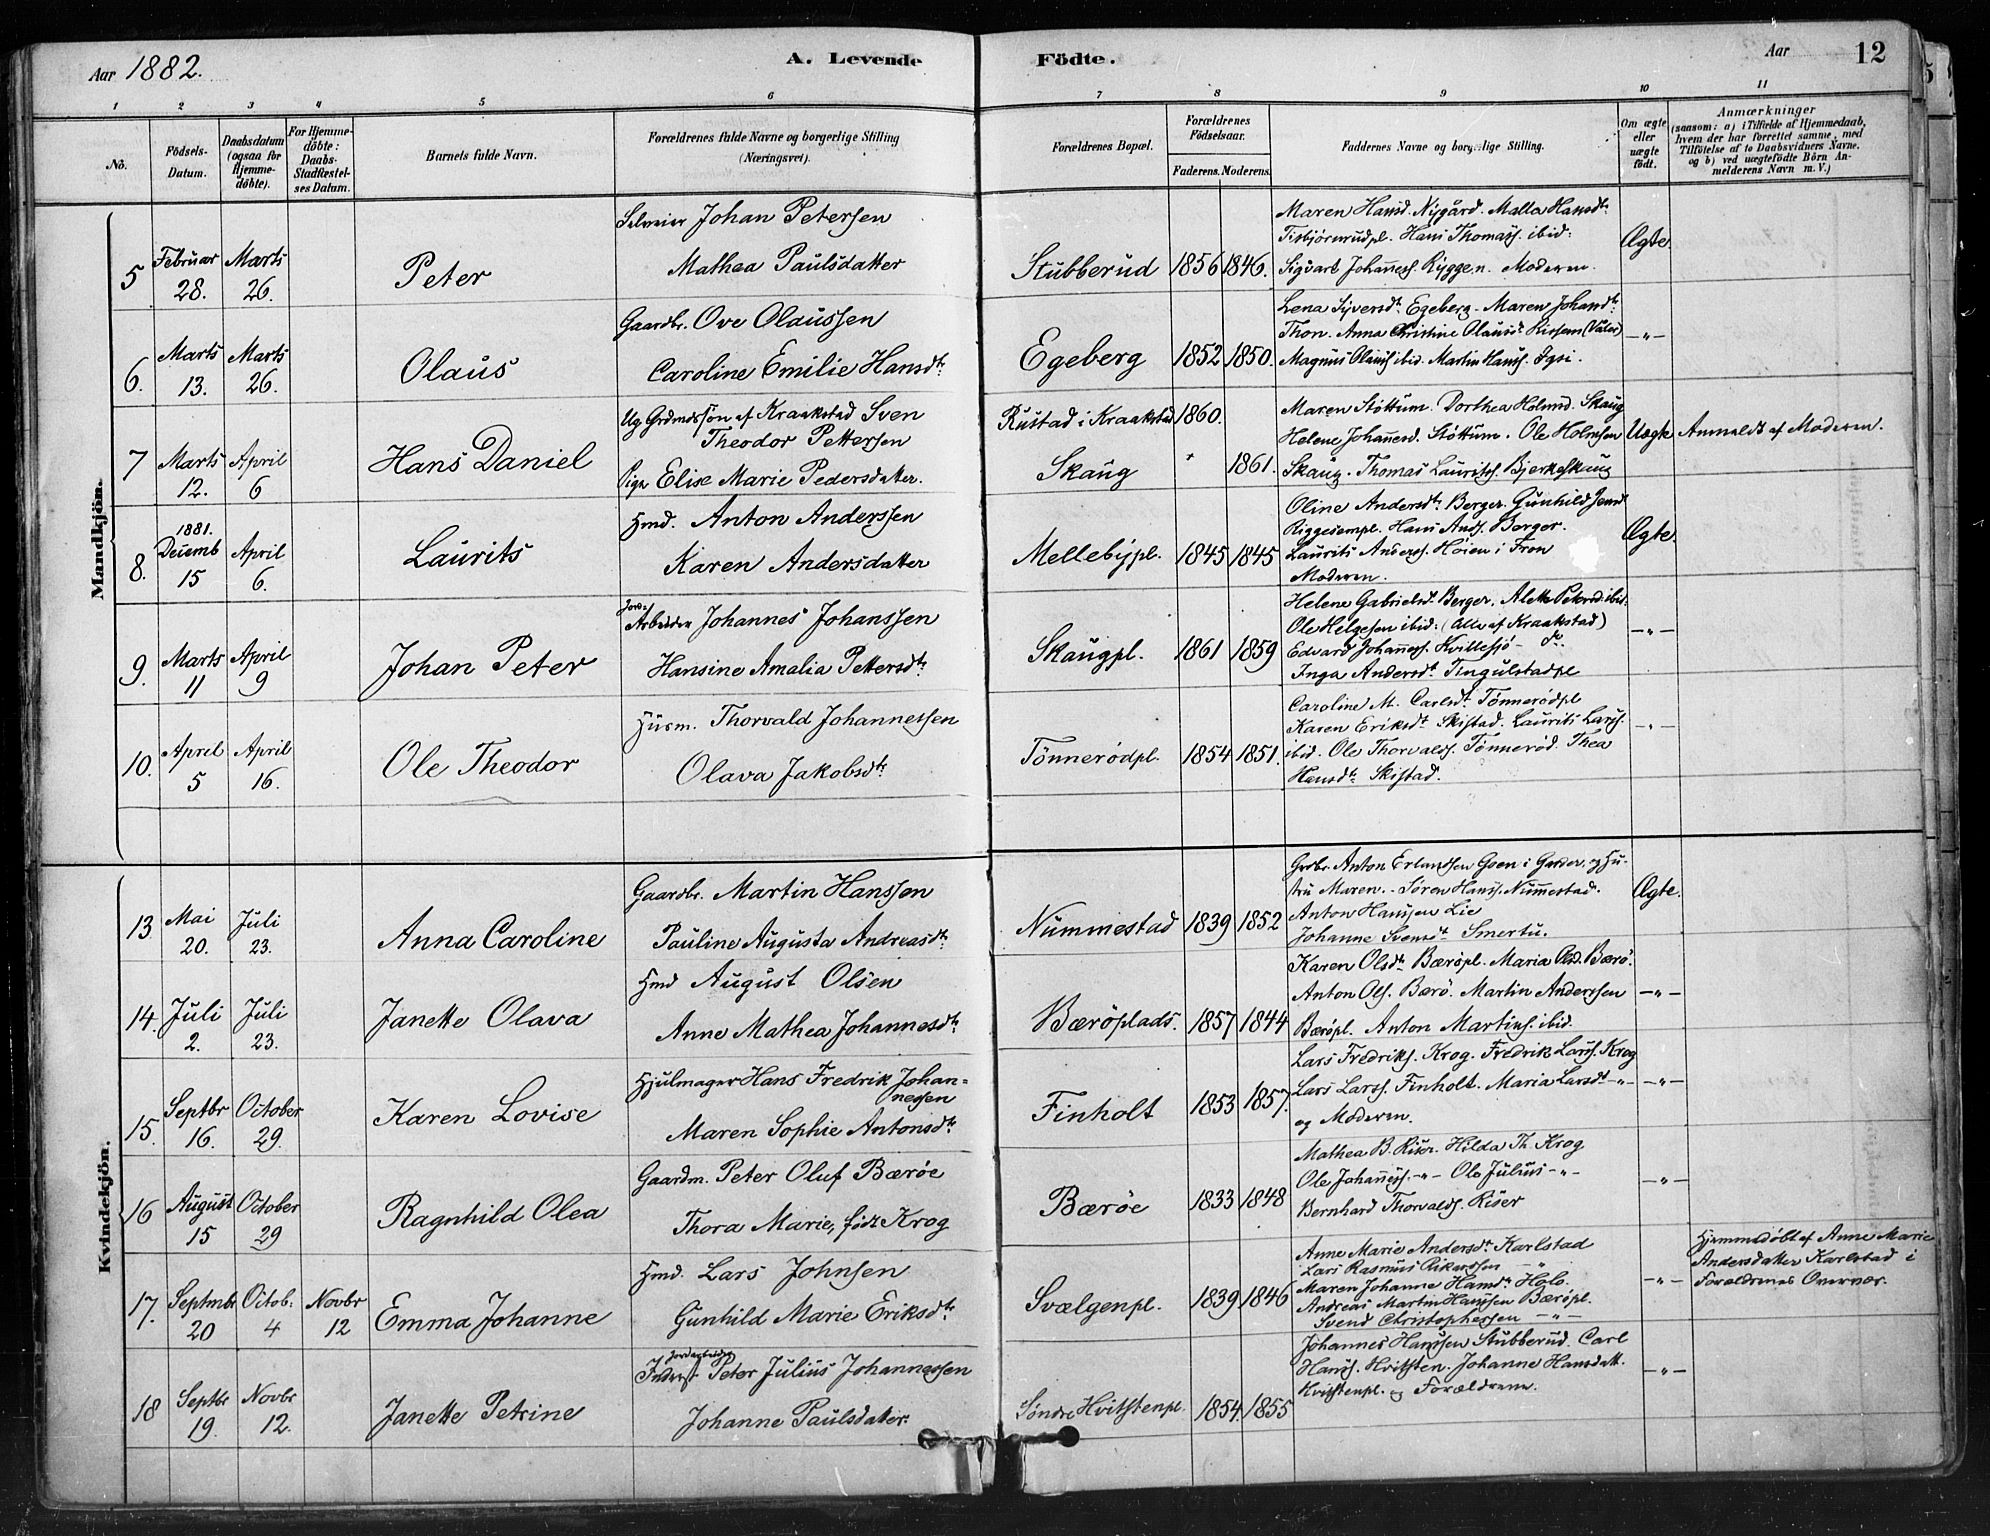 Aar 1882.
A. Levende Födte.
Aar
12
1 2 3 4 5 6 7 8 9 10 11
No.
Födsels-Datum.
Daabsdatum (ogsaa for Hjemmedöbte).
For Hjemmedöbte: Daabs-Stadfæstelses Datum.
Barnets fulde Navn.
Forældrenes fulde Navne og borgerlige Stilling (Næringsvei).
Forældrenes Bopæl.
Forældrenes Födselsaar.
Faderens. Moderens.
Faddernes Navne og borgerlige Stilling.
Om ægte eller uægte födt.
Anmærkninger
(saasom: a) i Tilfælde af Hjemmedaab, hvem der har forrettet samme, med Tilföielse af to Daabsvidners Navne, og b) ved uægtefödte Börn Anmelderens Navn m. V.)
Mandkjön.
5 Februar 28. Marts 26. Peter
Selveier Johan Petersen
Mathea Paulsdatter
Stubberud 1856 1846.
Maren Hansd. Nygård. Malla Hansdtr
Tisbjörnrudpl. Hans Thomass. ibid:
Sigvart Johanness. Ryggen. Moderen.
Ægte
6. Marts 13. Marts 26. Olaus
Gaardbr. Ove Olaussen
Caroline Emilie Hansdtr
Egeberg 1852 1850.
Lena Syversdtr Egeberg. Maren Johansdtr
Thon. Anna Christine Olausdtr
Magnus Olauss ibid. Martin Hanss.
–"–
7 Marts 12. April 6 Hans Daniel
Ug Grdmdssøn af Kraakstad Sven
Theodor Pettersen
Pige Elise Marie Pedersdatter.
Rustad i Kraakstad 1860.
Skaug 1861.
Maren Støttum. Dorthea Holmsd. Skaug
Helene Johannesd. Støttum. Ole Holmsen
Skaug. Thomas Lauritss. Bjerkeskaug
Uægte Anmeldt af Moderen.
8. 1881. Decemb 15 April 6. Laurits
Hmd. Anton Anderssen
Karen Andersdatter
Mellebypl. 1845 1845
Oline Andersdtr Berger. Gunhild Jensd
Riggesempl. Hans Ands. Berger.
Laurits Anderss. Høien i Fron
Moderen.
Ægte.
9. Marts 11 April 9 Johan Peter
Jord-
Arbeider Johannes Johanssen
Hansine Amalia Pettersdtr
Skaugpl. 1861 1859
Helene Gabrielsdtr Berger. Alette Petersd. ibid:
Ole Helgesen ibid: (Alle af Kraakstad)
Edvard Johanness. Kvillesjö –
Inga Andersdtr Tingulstadpl
–"–
10. April 5 April 16. Ole Theodor
Husm. Thorvald Johannessen
Olava Jakobsdtr
Tönnerödpl. 1854 1851.
Caroline M. Carlsdtr Tönnerödpl
Karen Eriksdtr Skistad. Laurits Larss.
ibid. Ole Thorvalds. Tönneröd. Thea
Hansdtr Skistad.
–"–
Kvindekjön.
13. Mai 20. Juli 23. Anna Caroline
Gaardbr. Martin Hanssen
Pauline Augusta Andreasdtr
Nummestad 1839 1852
Grdbr. Anton Erlandsen Goen i Garder, og Hu-
stru Maren. Sören Hanss. Nummestad.
Anton Hanssen Lie
Johanne Svensdtr Smertu.
Ægte.
14. Juli 2. Juli 23. Janette Olava
Hmd August Olsen
Anne Mathea Johannesdtr
Bæröplads. 1857 1844
Karen Olsdtr Bæröpl. Maria Olsd. Bærö.
Anton Ols. Bærö. Martin Anderssen
Bæröpl. Anton Martins. ibid.
–"–
15. Septbr 16. October 29. Karen Lovise
Hjulmager Hans Fredrik Johan=
nessen
Maren Sophie Antonsdtr
Finholt 1853 1857.
Lars Fredriks. Krog. Fredrik Larss. Krog
Lars Larss. Finholt. Maria Larsdtr –"–
og Moderen.
–"–
16 August 15 October 29 Ragnhild Olea
Gaardm. Peter Oluf Bæröe
Thora Marie, født Krog
Bæröe 1833 1848
Mathea B. Riser. Hilda Th. Krog
Ole Johanness. –"– Ole Julius –"–
Bernhard Thorvalds. Riser
–"–
17. Septmbr 20 Octob. 4 Novbr 12 Emma Johanne
Hmd. Lars Johnsen
Gunhild Marie Eriksdtr
Svælgenpl. 1839 1846
Anne Marie Andersdtr Karlstad
Lars Rasmus –"–
Maren Johanne Hansdtr Holo.
Andreas Martin Hanssen Bæröpl.
Svend Christophersen –"–
–"–
Hjemmedöbt af Anne Marie
Andersdatter Karlstad i
Forældrenes Overvær.
18 Septbr 19. Novbr 12. Janette Petrine
Jordarbeider
Inderst Peter Julius Johannessen
Johanne Paulsdatter.
Søndre Hvitstenpl. 1854. 1855
Johannes Hanssen Stubberud. Carl
Hanss. Hvitsten. Johanne Hansdatt.
Kvitstenpl. og Forældrene.
–"–